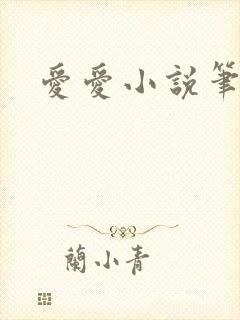 愛愛小說筆
蘭小青